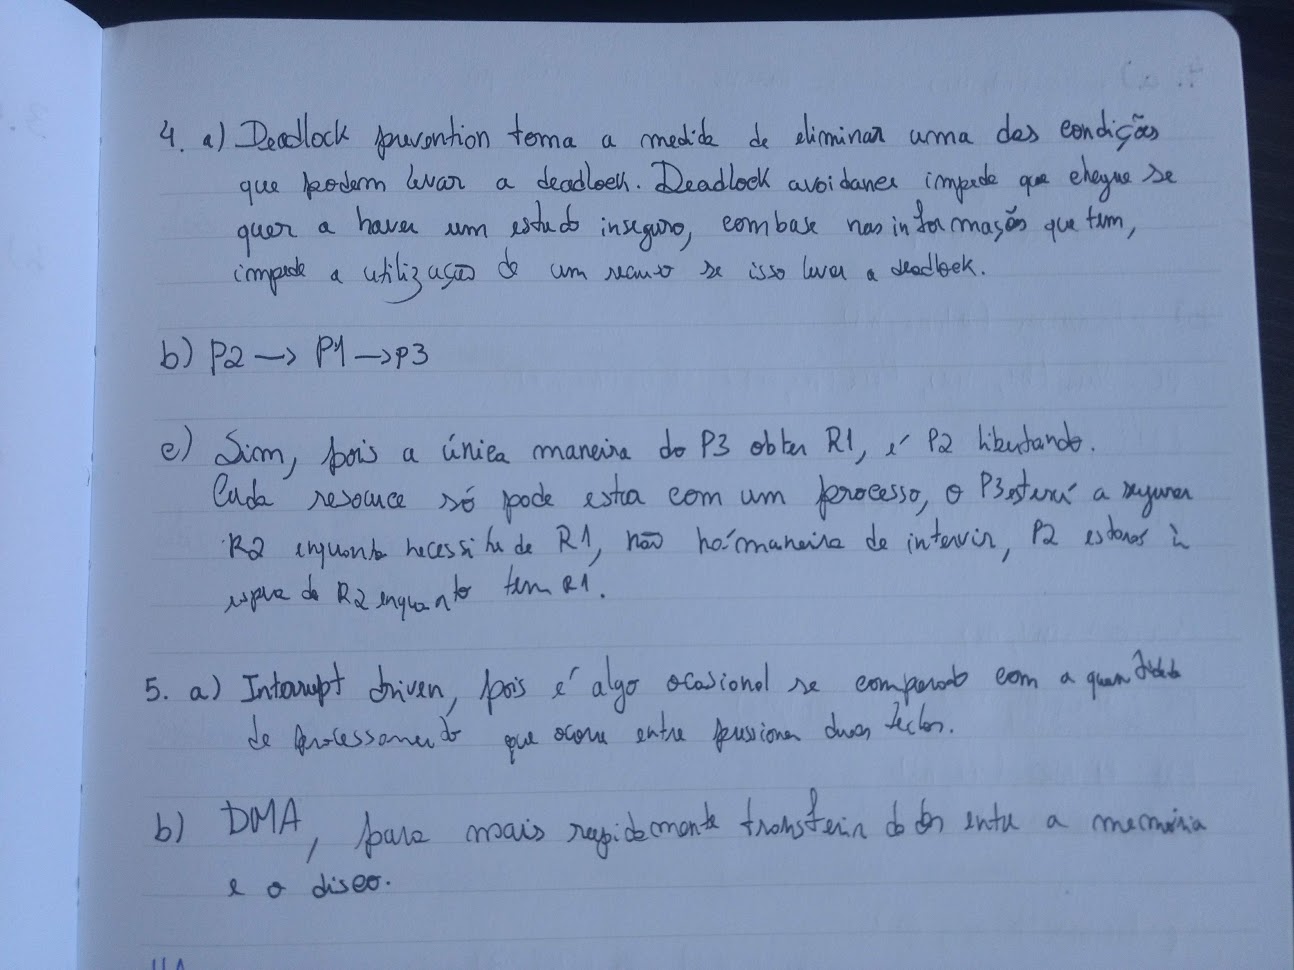 4. a) Deadlock prevention toma a medida de eliminar uma das condições
que podem levar a deadlock. Deadlock avoidance impede que chegue se
quer a haver um estado inseguro, com base nas informações que tem,
impede a utilização de um recurso se isso levar a deadlock.
b) P2 —> P1 —> P3
c) Sim, pois a única maneira do P3 obter R1, é P2 libertando.
Cada resource só pode estra com um processo, o P3 estará a segurar
R2 enquanto necessita de R1, não há maneira de intervir, P2 estará à
espera do R2 enquanto tem R1.
5. a) Interrupt driven, pois é algo ocasional se comparado com a quantidade
de processamento que ocorre entre pressionar duas teclas.
b) DMA, para mais rapidamente transferir dados entre a memória
e o disco.